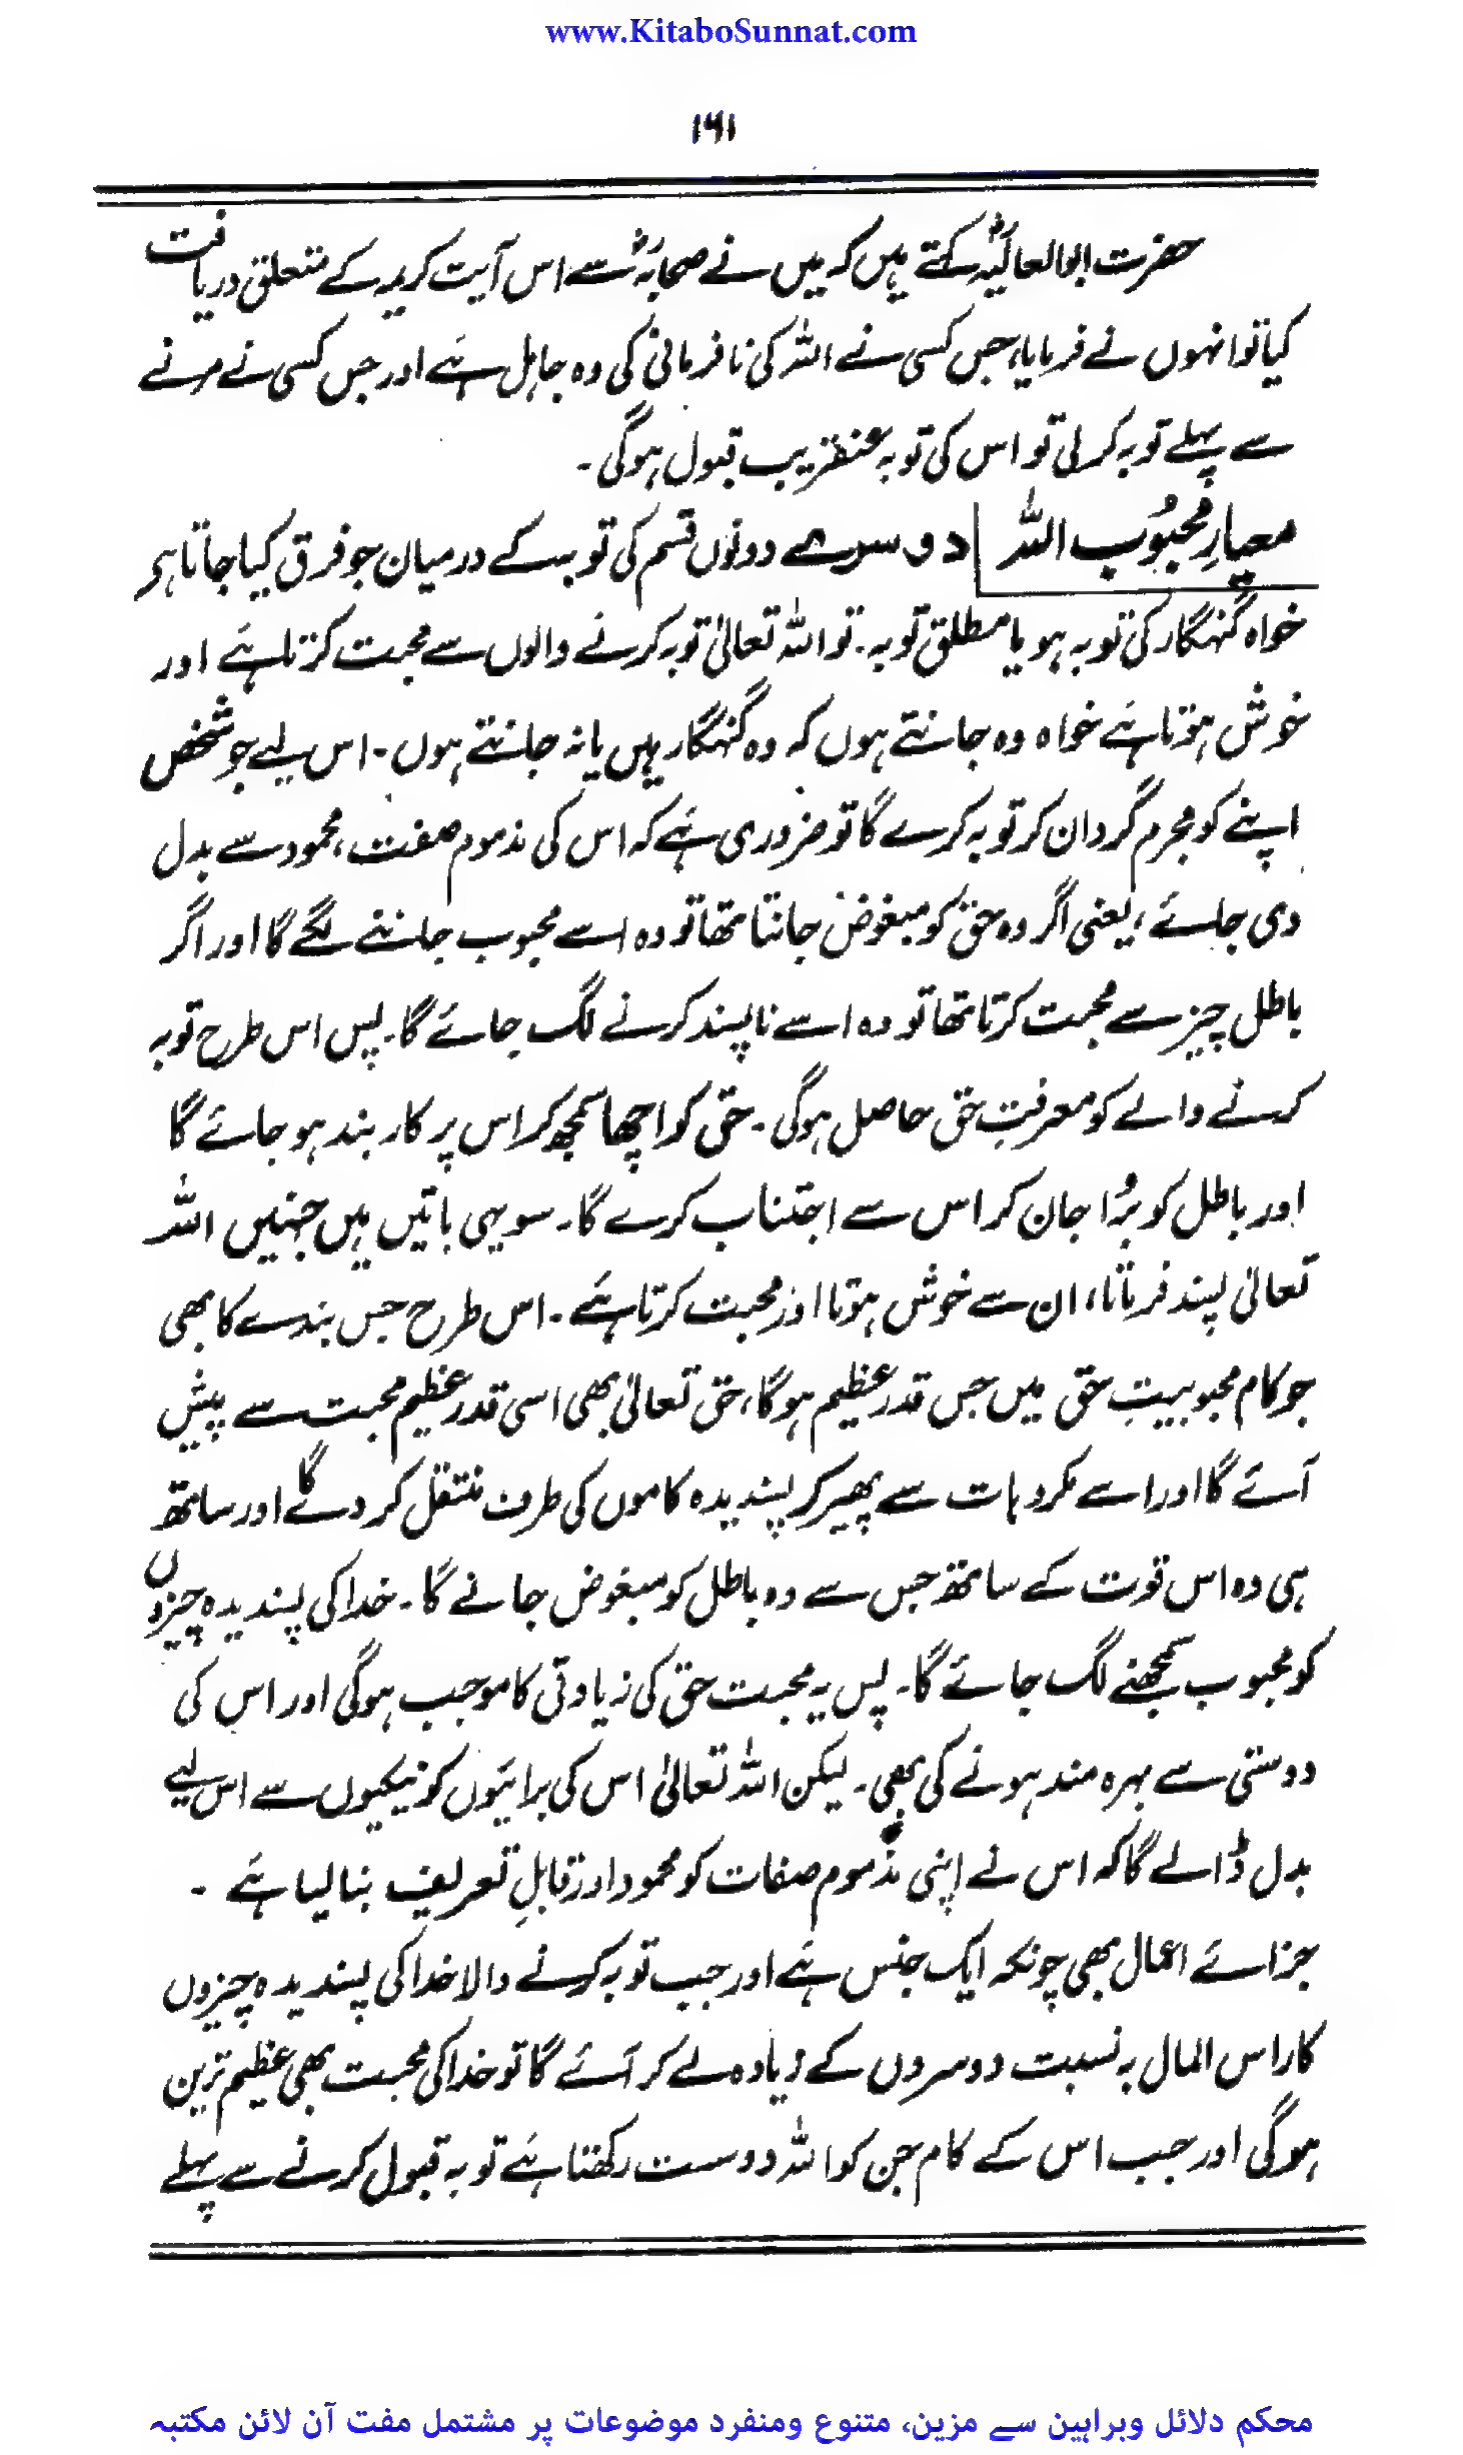 www.KitaboSunnat.com
۱۶۱
حضرت ابوالعالیہؒ کہتے ہیں کہ میں نے صحابہؓ سے اس آیت کریمہ کے متعلق دریافت
کیا تو انہوں نے فرمایا، جس کسی نے اللہ کی نافرمانی کی وہ جاہل ہے اور جس کسی نے مرنے
سے پہلے توبہ کر لی تو اس کی توبہ عنقریب قبول ہوگی ۔
معیارِ محبُوب اللہ دوسرے دونوں قسم کی توبہ کے درمیان جو فرق کیا جاتا ہے
خواہ گنہگار کی توبہ ہو یا مطلق توبہ ۔ تو اللہ تعالیٰ توبہ کرنے والوں سے محبت کرتا ہے اور
خوش ہوتا ہے خواہ وہ جانتے ہوں کہ وہ گنہگار ہیں یا نہ جانتے ہوں ۔ اس لیے جو شخص
اپنے کو مجرم گردان کر توبہ کرے گا تو ضروری ہے کہ اس کی مذموم صفت، محمود سے بدل
دی جائے ، یعنی اگر وہ حق کو مبغوض جانتا تھا تو وہ اسے محبوب جاننے لگے گا اور اگر
باطل چیز سے محبت کرتا تھا تو وہ اسے ناپسند کرنے لگ جائے گا۔ پس اس طرح توبہ
کرنے والے کو معرفتِ حق حاصل ہوگی ۔ حق کو اچھا سمجھ کر اس پر کار بند ہو جائے گا
اور باطل کو بُرا جان کر اس سے اجتناب کرے گا۔ سو یہی باتیں ہیں جنہیں اللہ
تعالیٰ پسند فرماتا، ان سے خوش ہوتا اور محبت کرتا ہے ۔ اس طرح جس بندے کا بھی
جو کام محبوبیتِ حق میں جس قدر عظیم ہوگا، حق تعالیٰ بھی اسی قدر عظیم محبت سے پیش
آئے گا اور اسے مکروہات سے پھیر کر پسندیدہ کاموں کی طرف منتقل کر دے گا اور ساتھ
ہی وہ اس قوت کے ساتھ جس سے وہ باطل کو مبغوض جانے گا ۔ خدا کی پسندیدہ چیزوں
کو محبوب سمجھنے لگ جائے گا۔ پس یہ محبت حق کی زیادتی کا موجب ہوگی اور اس کی
دوستی سے بہرہ مند ہونے کی بھی ۔ لیکن اللہ تعالیٰ اس کی برائیوں کو نیکیوں سے اس لیے
بدل ڈالے گا کہ اس نے اپنی مذموم صفات کو محمود اور قابلِ تعریف بنا لیا ہے ۔
جزائے اعمال بھی چونکہ ایک جنس ہے اور جب توبہ کرنے والا خدا کی پسندیدہ چیزوں
کا راس المال بہ نسبت دوسروں کے زیادہ لے کر آئے گا تو خدا کی محبت بھی عظیم ترین
ہوگی اور جب اس کے کام جن کو اللہ دوست رکھتا ہے توبہ قبول کرنے سے پہلے
محکم دلائل وبراہین سے مزین، متنوع ومنفرد موضوعات پر مشتمل مفت آن لائن مکتبہ